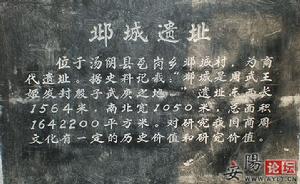 邶城遗址
位于汤阴县瓦岗乡邶城村，为商
代遗址。据史料记载："邶城是周武王
姬发封殷子武庚之地。"遗址东西长
1564米，南北宽1050米，总面积
1642200平方米。对研究我国商周
文化有一定的历史价值和研究价值。
安阳论坛